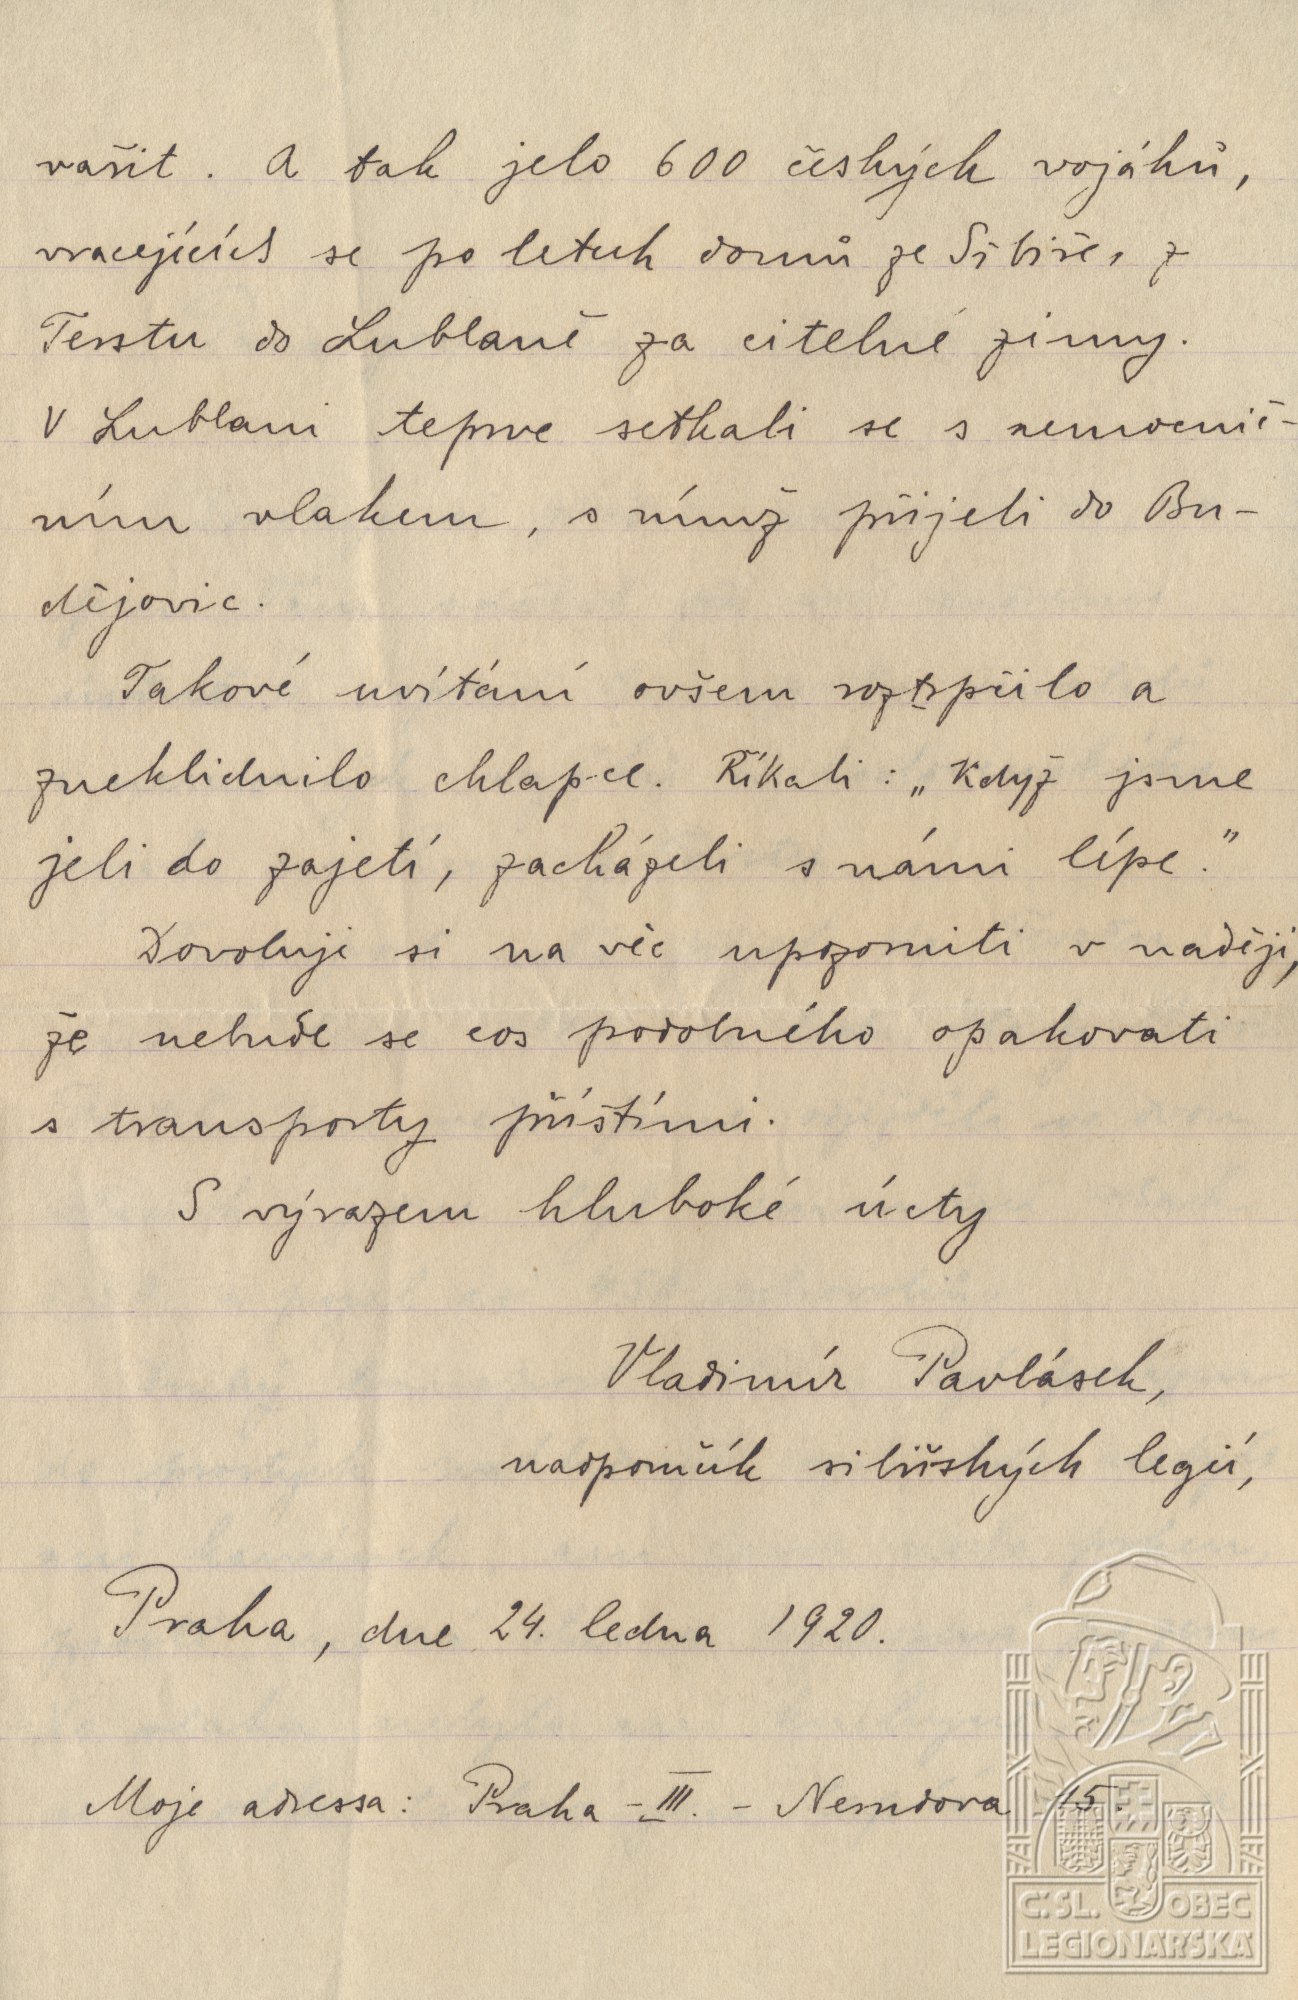 vařit. A tak jelo 600 českých vojáků,
vracejících se po letech domů ze Sibiře, z
Terstu do Lublaně za citelné zimy.
V Lublani teprve setkali se s nemocnič-
ním vlakem, s nímž přijeli do Bu-
dějovic.
Takové uvítání ovšem roztrpčilo a
zneklidnilo chlapce. Říkali: „Když jsme
jeli do zajetí, zacházeli s námi lépe."
Dovoluji si na věc upozorniti v naději,
že nebude se cos podobného opakovati
s transporty příštími.
S výrazem hluboké úcty
Vladimír Pavlásek,
nadporučík sibiřských legií,
Praha, dne 24. ledna 1920.
Moje adressa: Praha - III. - Nerudova 15.
Č.SL. OBEC
LEGIONÁŘSKÁ